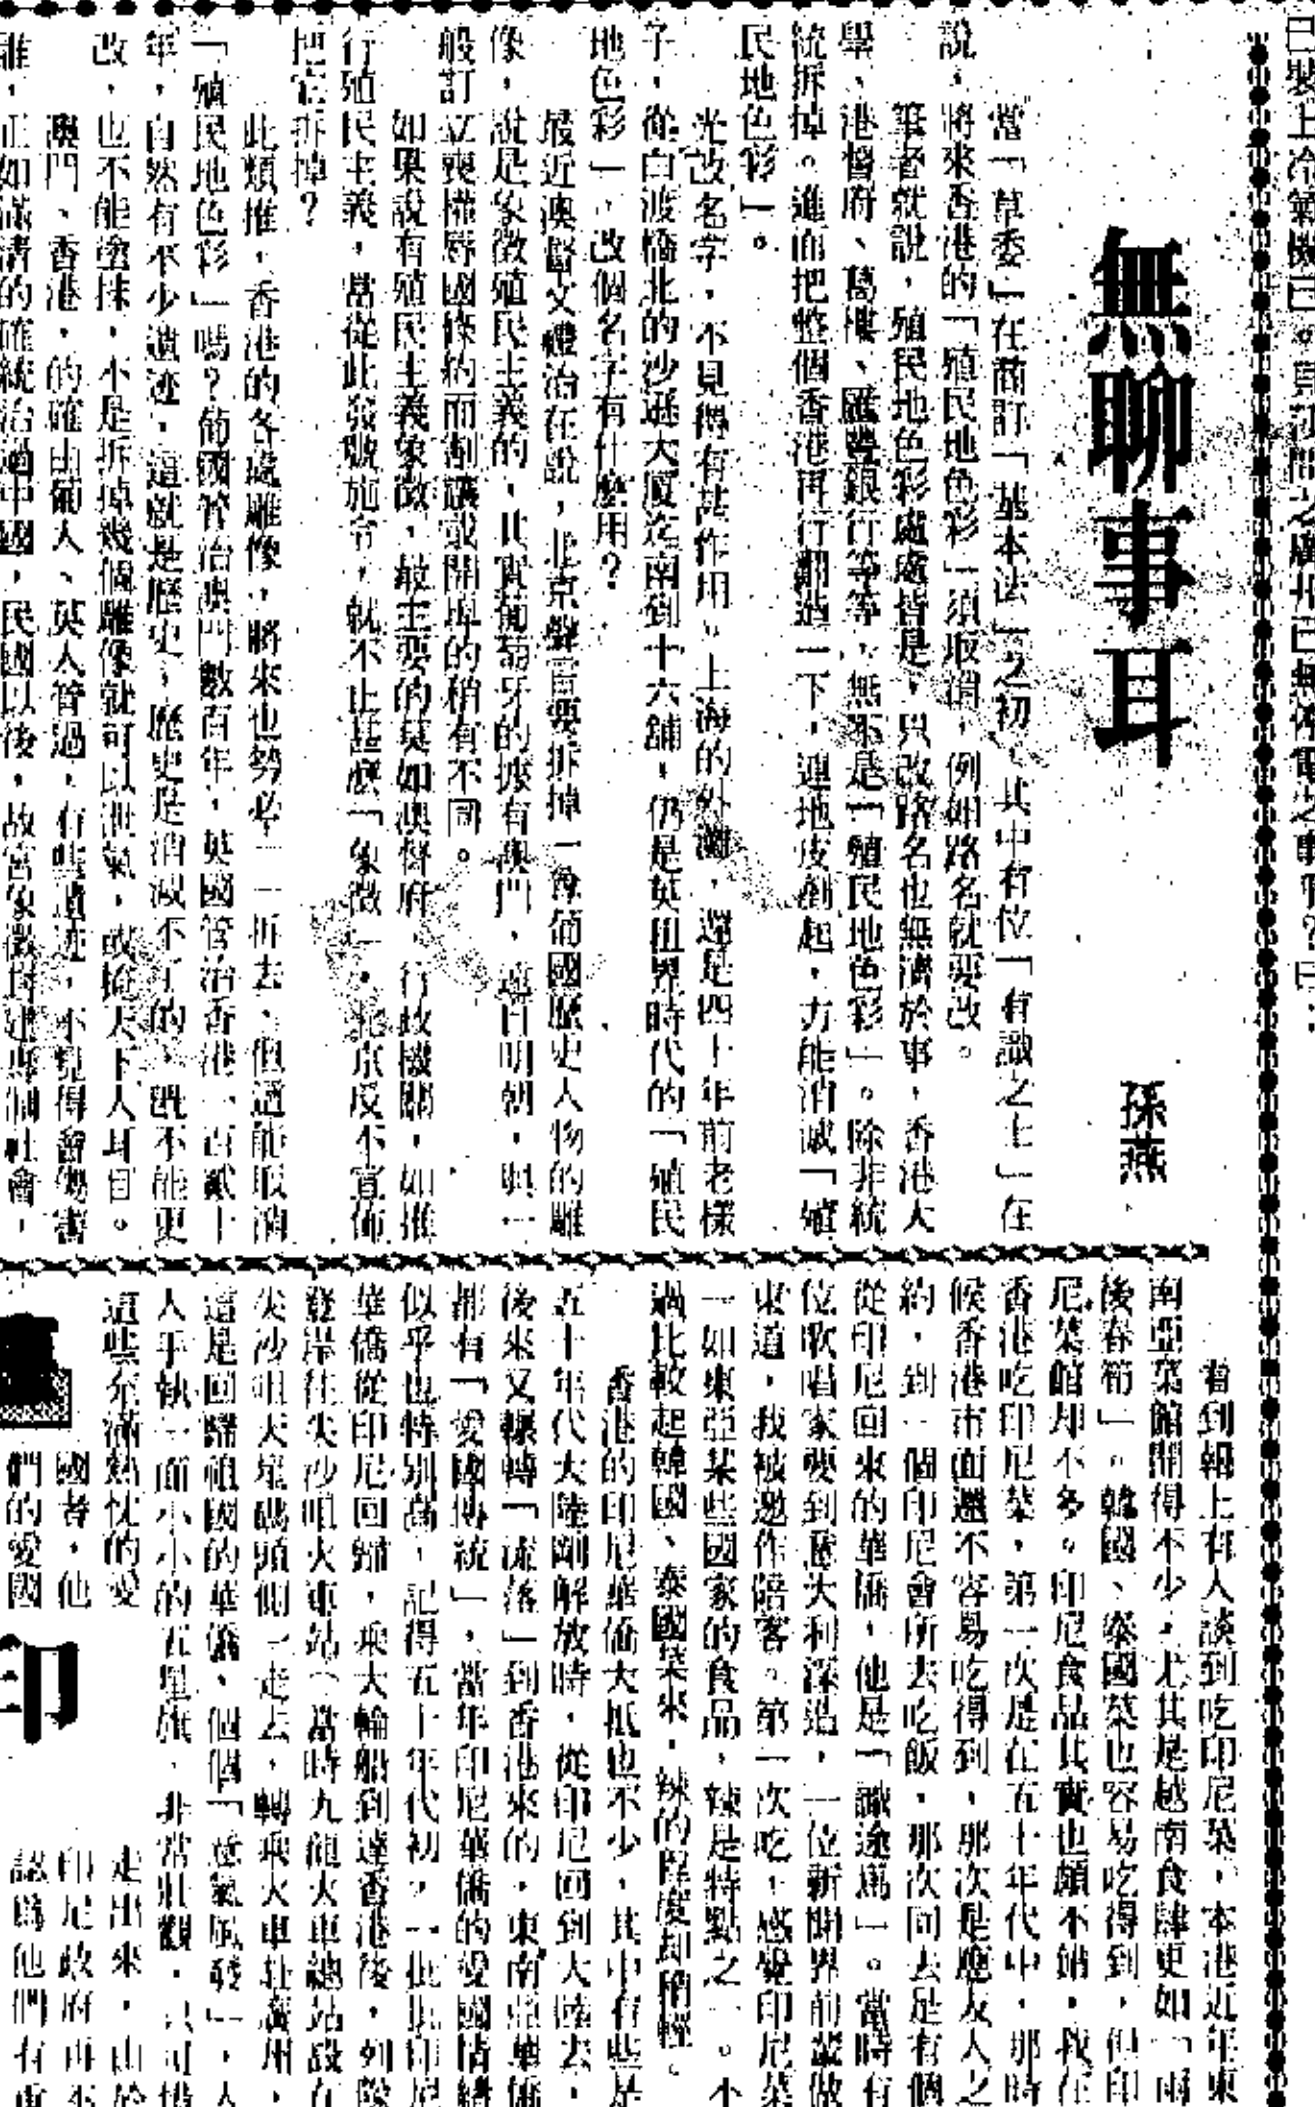 已裝上冷氣機
無聊事耳
孫燕
當「草委」在商訂「基本法」之初，其中有位「有識之士」在
說，將來香港的「殖民地色彩」須取消，例如路名就要改。
筆者就說，殖民地色彩處處皆是，只改路名也無濟於事，香港大
學、港督府、葛樓、匯豐銀行等等，無不是「殖民地色彩」。除非統
統拆掉。進而把整個香港再行翻造一下，連地皮剷起，方能消滅「殖
民地色彩」。
光改名字，不見得有甚作用。上海的外灘，還是四十年前老樣
子，從白渡橋北的沙遜大廈迄南到十六舖，仍是英租界時代的「殖民
地色彩」，改個名字有什麼用？
最近澳督文禮治在說，北京聲言要拆掉一尊葡國歷史人物的雕
像，說是象徵殖民主義的，其實葡萄牙的據有澳門，遠自明朝，與一
般訂立喪權辱國條約而割讓或開埠的稍有不同。
如果說有殖民主義象徵，最主要的莫如澳督府，行政機關，如推
行殖民主義，當從此發號施令，就不止甚麼「象徵」，北京反不宣佈
把它拆掉？
此類推，香港的各處雕像，將來也勢必一一拆去，但這能取消
「殖民地色彩」嗎？葡國管治澳門數百年，英國管治香港一百
年，自然有不少遺迹，這就是歷史，歷史是消滅不了的，既不能更
改，也不能塗抹，不是拆掉幾個雕像就可以泄氣，或掩天下人耳目。
澳門、香港，的確由葡人、英人管過，有些遺迹，不見得會傷害
誰，正如滿清的確統治過中國，民國以後，故宮象徵封建專制社會，
看到報上有人談到吃印尼菜，本港近年東
南亞菜館開得不少，尤其是越南食肆更如「雨
後春筍」。韓國、泰國菜也容易吃得到，但印
尼菜館却不多。印尼食品其實也頗不錯，我在
香港吃印尼菜，第一次是在五十年代中，那時
候香港市面還不容易吃得到，那次是應友人之
約，到一個印尼會所去吃飯，那次同去是有個
從印尼回來的華僑，他是「識途馬」。當時有
位歌唱家要到意大利深造，一位新聞界前輩做
東道，我被邀作陪客。第一次吃，感覺印尼菜
一如東亞某些國家的食品，辣是特點之一。不
過比較起韓國、泰國菜來，辣的程度却稍輕。
香港的印尼華僑大抵也不少，其中有些是
五十年代大陸剛解放時，從印尼回到大陸去，
後來又輾轉「流落」到香港來的，東南亞華僑
都有「愛國傳統」，當年印尼華僑的愛國情緒
似乎也特別高，記得五十年代初，一批批印尼
華僑從印尼回歸，乘大輪船到達香港後，列隊
登岸往尖沙咀火車站（當時九龍火車總站設在
尖沙咀天星碼頭側）走去，轉乘火車往廣州，
這是回歸祖國的華僑，個個「意氣風發」，人
人手執一面小小的五星旗，非常壯觀，只可惜
這些充滿熱忱的愛
國者，他
們的愛國
印
走出來，由於
印尼政府再不
認爲他們有